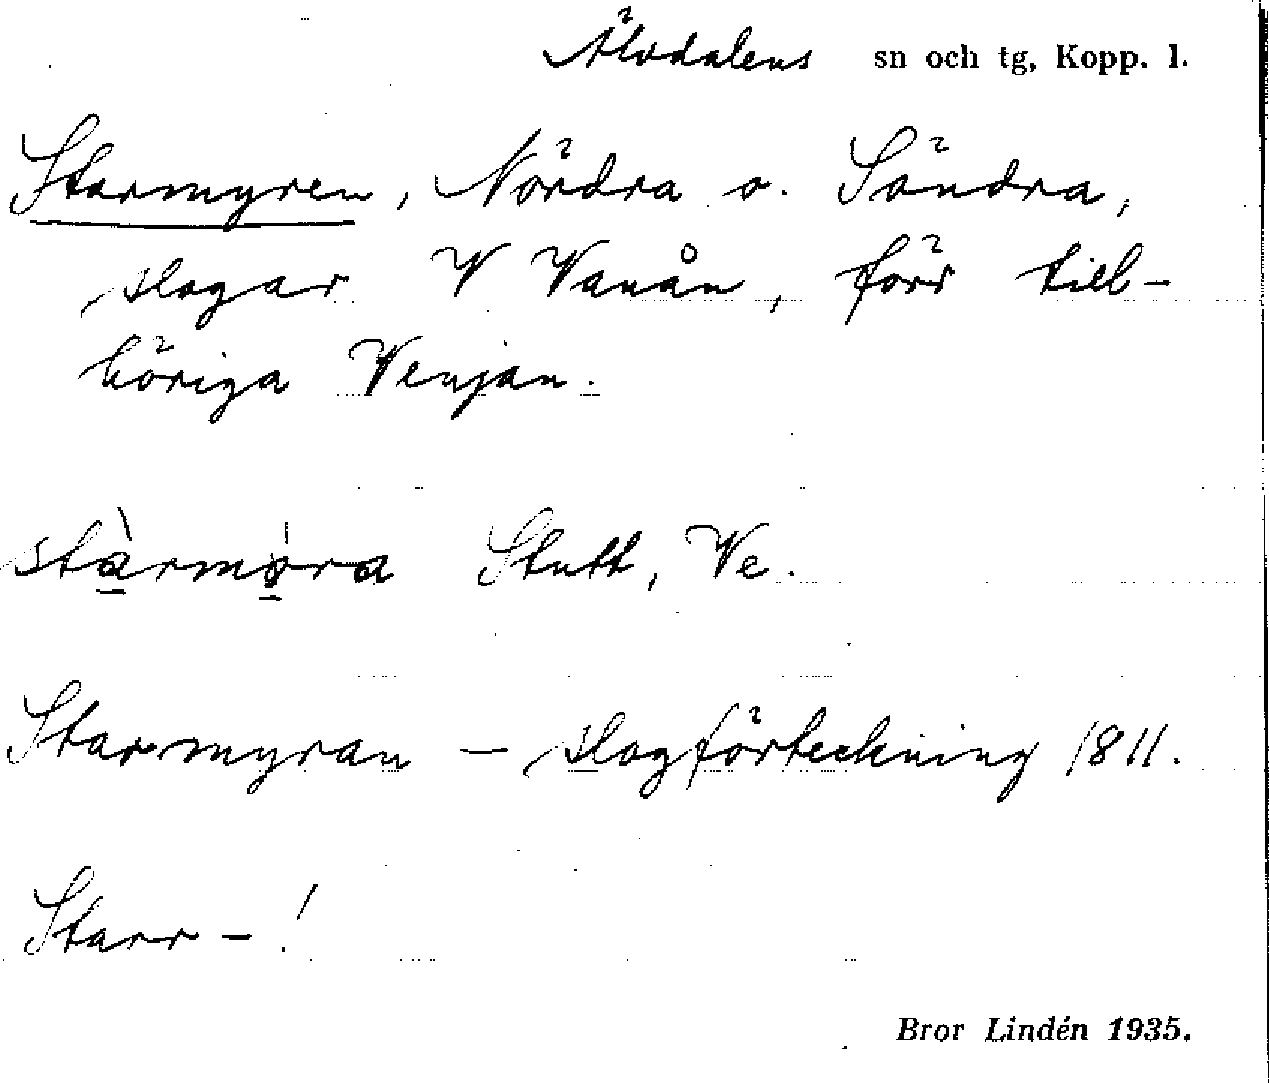 Älvdalens sn och tg, Kopp. l.
Starmyren, Nördra o. Söndra,
slogar V Vanån, förr till-
höriga Venjan.
stàrmøra Stutt, Ve.
Starmyran – slogförteckning 1811.
Starr – !
Bror Lindén 1935.